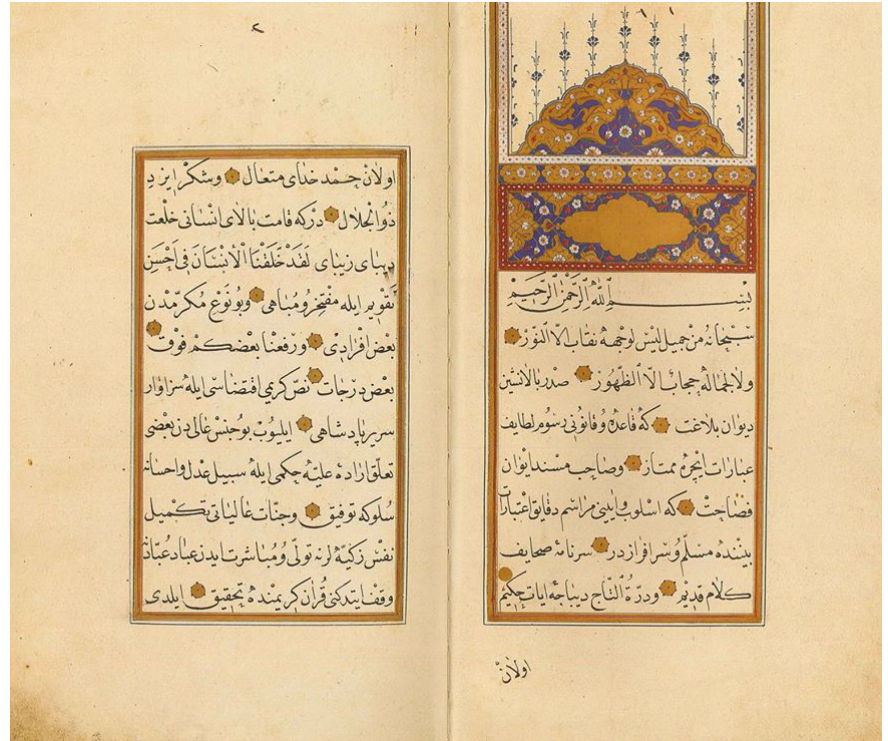 بِسْمِ اللهِ الرَّحْمٰنِ الرَّحِيمِ
سبحانه من جميل ليس لوجهه نقاب الا النور
ولا لجماله حجاب الا الظهور صدر بالانشين
ديوان بلاغت كه قاعده و قانونى رسوم لطايف
عبارات ايچره ممتاز وصاحب مسند ايوان
فصاحت كه اسلوب وايينى مراسم دقايق اعتبارات
بيننده مسلم وسرافرازدر سرنامهٔ صحايف
كلام قديم ودرة التاج ديباجهٔ ايات حكيم
اولان
٢
اولان حمد خداى متعال وشكر ايزد
ذو الجلال دركه قامت بالاى انسانى خلعت
زيباى لَقَدْ خَلَقْنَا الْاِنْسَانَ فِى اَحْسَنِ
تقويم ايله مفتخر ومباهى وبو نوع مكرمدن
بعض افرادى ورفعنا بعضكم فوق
بعض درجات نص كريمى اقتضاسى ايله سزاوار
سرير پادشاهى ايليوب بو جنس عاليدن بعضى
تعلق ارادهٔ عليه حكمى ايله سبيل عدل واحسانه
سلوكه توفيق وجنات عالياتى تكميل
نفس زكيه لرنه تولى ومباشرت ايدن عباد عباده
وقف ايتدكنى قرآن كريمنده تحقيق ايلدى